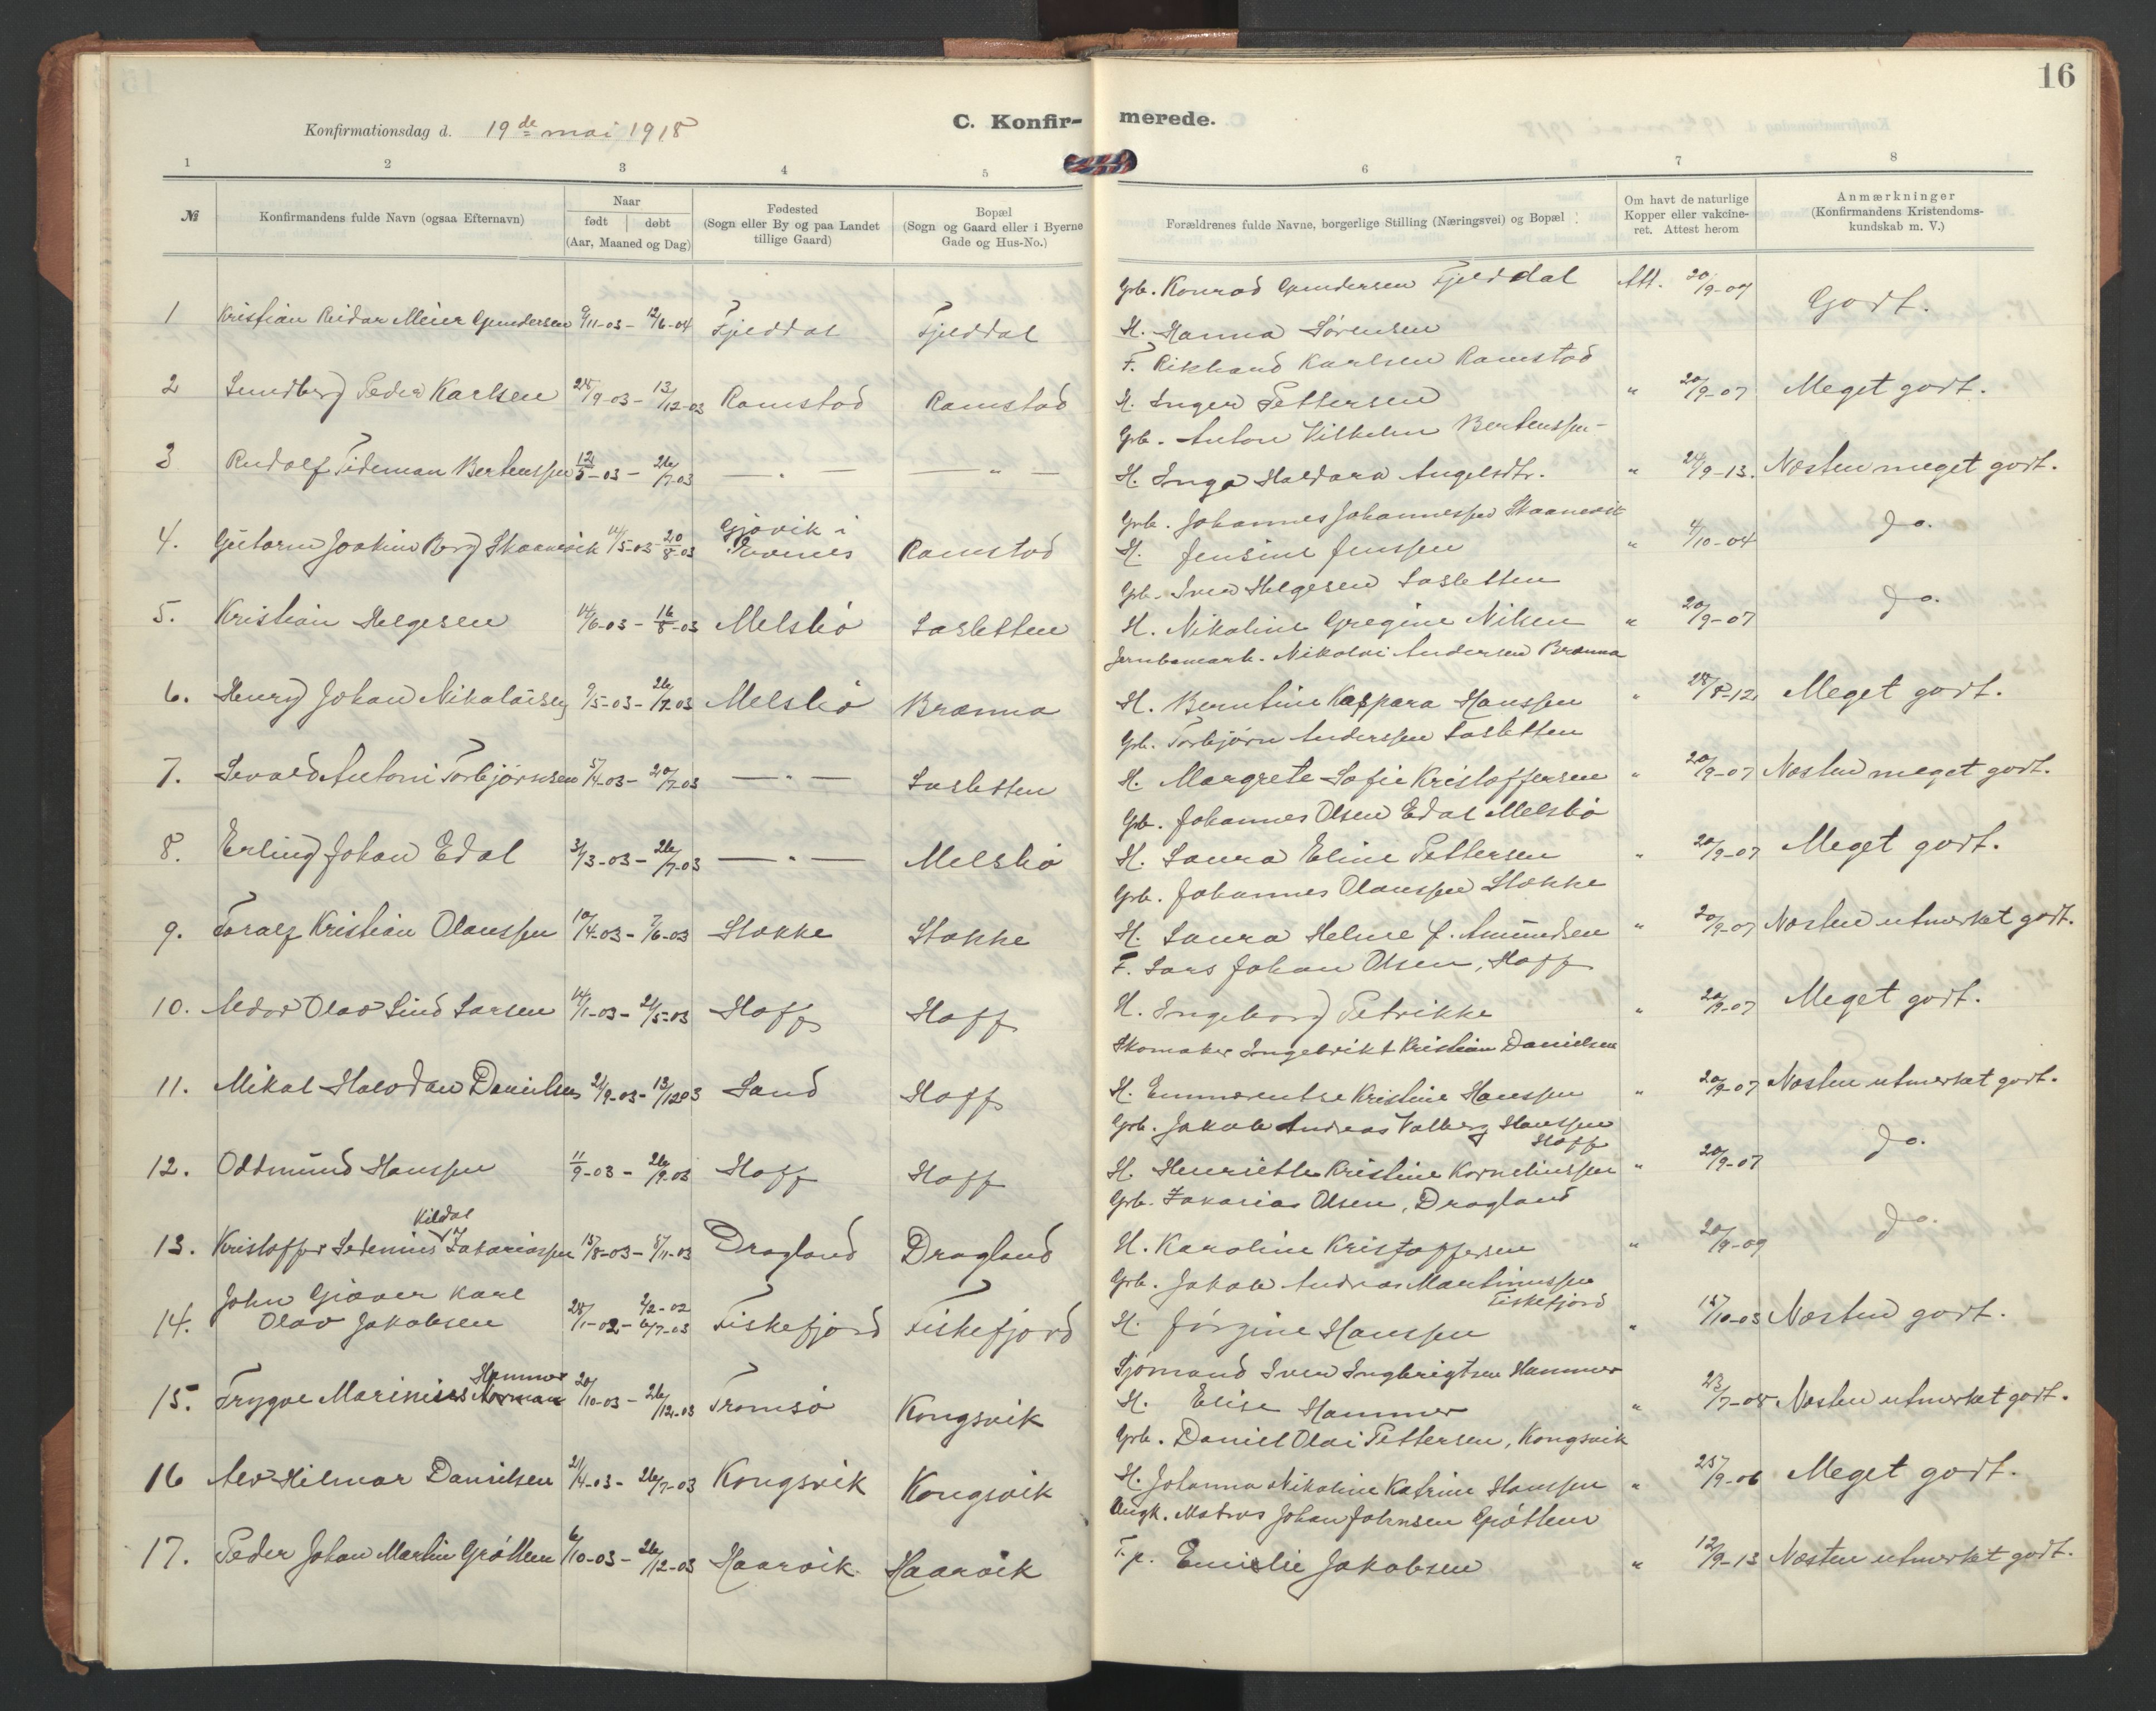 16
Konfirmationsdag d. 19de mai 1918
C. Konfir- merede.
1 2 3 4 5 6 7 8
№ Konfirmandens fulde Navn (ogsaa Efternavn) Naar født | døbt (Aar, Maaned og Dag) Fødested (Sogn eller By og paa Landet tillige Gaard) Bopæl (Sogn og Gaard eller i Byerne Gade og Hus-No.) Forældrenes fulde Navne, borgerlige Stilling (Næringsvei) og Bopæl Om havt de naturlige Kopper eller vakcineret. Attest herom Anmærkninger (Konfirmandens Kristendomskundskab m. V.)
Grb. Konrad Gundersen Fjelddal Att. 20/9-07 Godt.
1 Kristian Reidar Meier Gundersen 9/11-03 - 12/6-04 Fjelddal Fjelddal H. Hanna Sørensen
F. Rikhard Karlsen Ramstad
2 Lundberg Peder Karlsen 28/9-03 - 13/12-03 Ramstad Ramstad H. Inger Pettersen " 20/9-07 Meget godt.
Grb. Anton Vilhelm Bertenssen -
3 Rudolf Tideman Bertenssen 12/5-03 - 26/7-03 — " — — " — H. Inga Haldora Angelsdtr. " 24/9-13. Næsten meget godt.
Grb. Johannes Johannessen Skaanevik
4. Gutorm Joakim Berg Skaanevik 14/5-03 - 20/8-03 Gjøvik i Evenes Ramstad H. Jensine Jenssen " 4/10-04 do.
Grb. Iver Helgesen Lasletten
5. Kristian Helgesen 14/6-03 - 16/8-03 Melsbø Lasletten H. Nikoline Gregine Nilsen " 20/9-07 do.
Nikolai Andersen Brænna
6. Henry Johan Nikolaisen 9/5-03 - 26/7-03 Melsbø Brænna H. Berntine Kaspara Hanssen " 28/8-12. Meget godt.
Grb. Torbjørn Anderssen Lasletten
7. Sevald Antoni Torbjørnsen 5/4-03 - 20/7-03 — " — Lasletten H. Margrete Sofie Kristoffersen " 20/9-07 Næsten meget godt.
Grb. Johannes Olsen Edal Melsbø
8. Erling Johan Edal 3/3-03 - 26/7-03 — " — Melsbø H. Laura Eline Pettersen " 20/9-07 Meget godt.
Grb. Johannes Olaussen Stokke
9. Toralf Kristian Olaussen 10/4-03 - 7/6-03 Stokke Stokke H. Laura Helene f. Amundsen " 20/9-07 Næsten utmerket godt.
F. Lars Johan Olsen, Hoff
10. Aedor Olav Lind Larsen 14/1-03 - 21/5-03 Hoff Hoff H. Ingeborg Petrikke " 20/9-07 Meget godt.
Skomaker Ingebrikt Kristian Danielsen
11. Mikal Halvdan Danielsen 21/9-03 - 13/12-03 Sand Hoff H. Emmerentse Kristine Hanssen " 20/9-07 Næsten utmerket godt.
Grb. Jakob Andreas Valberg Hanssen Hoff
12. Oddmund Hanssen 11/9-03 - 26/9-03 Hoff Hoff H. Henriette Kristine Korneliussen " 20/9-07 do.
Grb. Zakarias Olsen, Dragland
13. Kristoffer Sedenius Kildal Zakariassen 15/8-03 - 8/11-03 Dragland Dragland H. Karoline Kristoffersen " 20/9-09 do.
Grb. Jakob Andreas Martinussen Fiskefjord
14. John Giæver Karl Olav Jakobsen 28/1-02 - 2/2-02 6/7-03 Fiskefjord Fiskefjord H. Jørgine Hanssen " 15/10-03 Næsten godt.
Sjømand Iver Ingbrigtsen Hammer
15. Trygve Marinius Norman Hammer 20/10-03 - 26/12-03 Tromsø Kongsvik H. Elise Hammer " 23/7-08 Næsten utmerket godt.
Grb. Daniel Olai Pettersen, Kongsvik
16 Alv Hilmar Danielsen 2/4-03 - 26/7-03 Kongsvik Kongsvik H. Johanna Nikoline Katrine Hanssen " 25/9-06 Meget godt.
Ungk. Matros Johan Johnsen Grøtten
17. Peder Johan Martin Grøtten 6/10-03 - 26/12-03 Haarvik Haarvik F.p. Emilie Jakobsen " 12/9-13 Næsten utmerket godt.